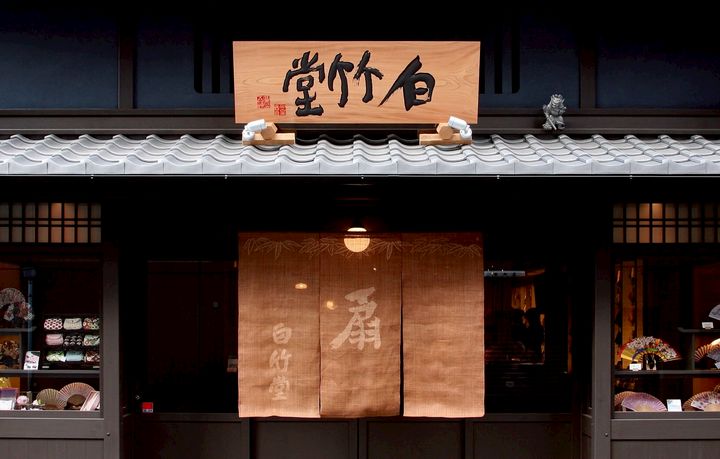 白竹堂
扇
白竹堂